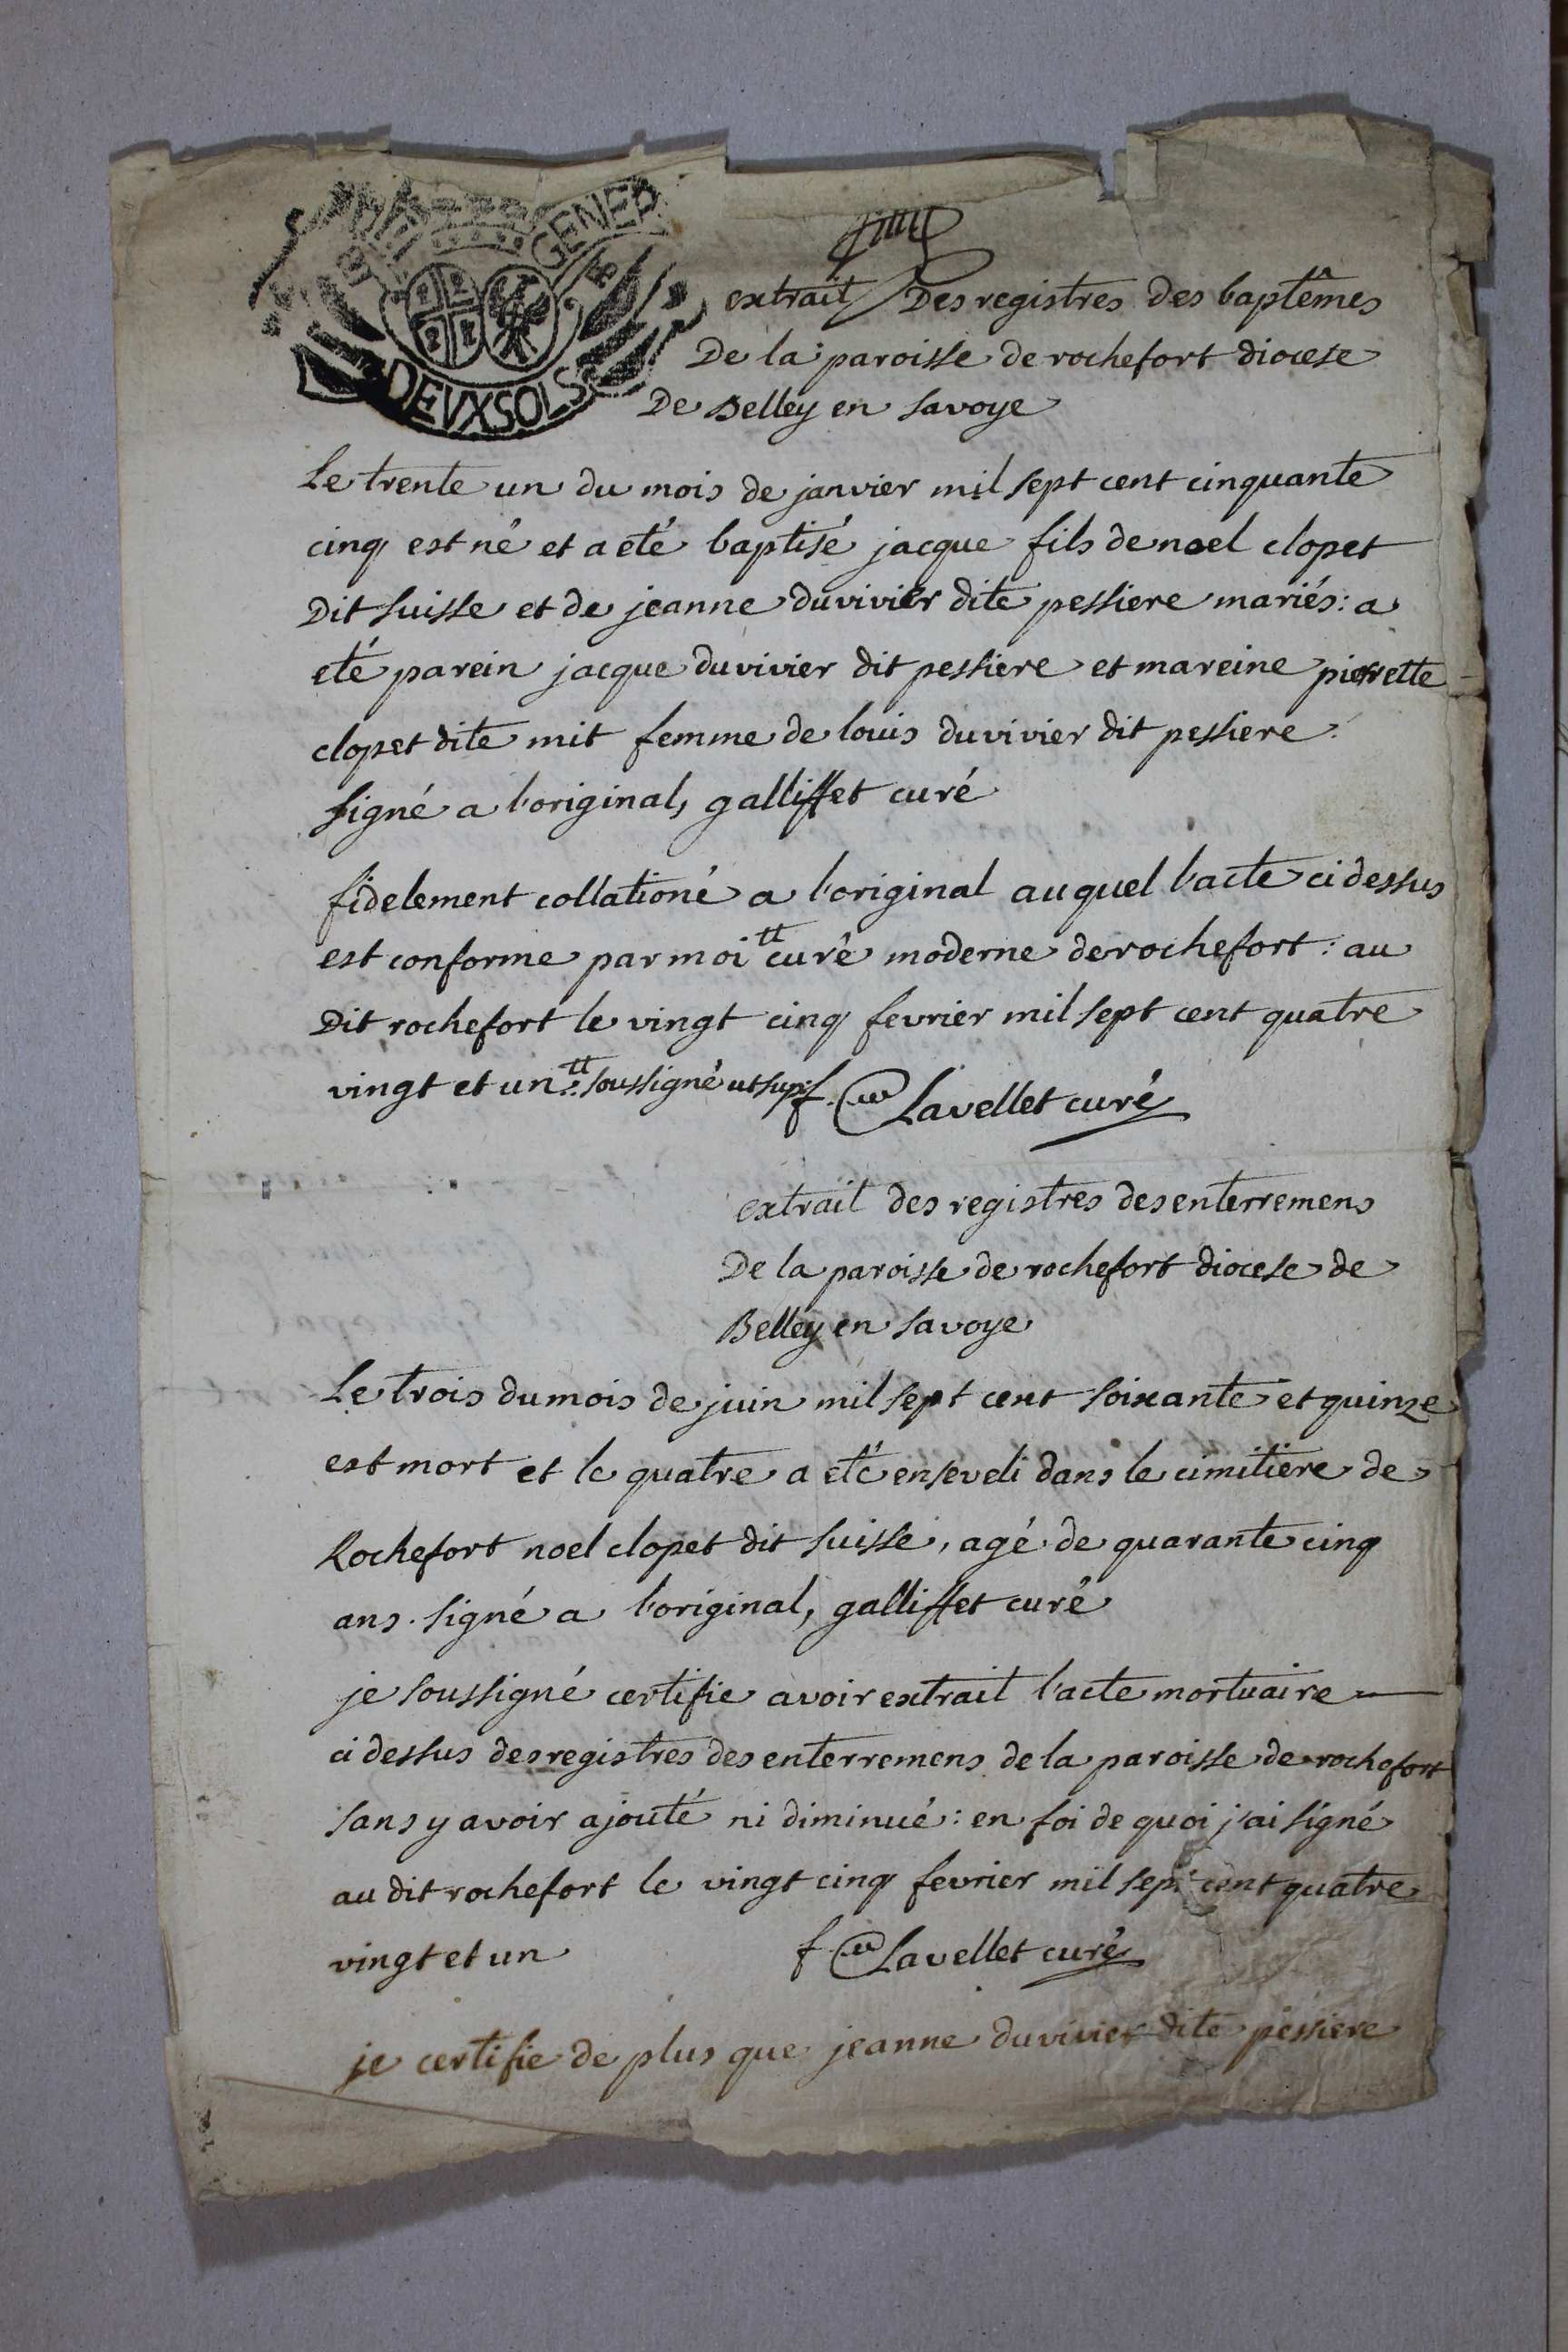 GENER
DEVXSOLS
extrait Des registres des baptêmes
De la paroisse de rochefort diocese
De Belley en Savoye
Le trente un du mois de janvier mil sept cent cinquante
cinq est né et a eté baptisé jacque fils de noel clopet
Dit suisse et de jeanne duvivier dite pessiere mariés: a
eté parein jacque duvivier dit pessiere et mareine pierrette
clopet dite mit femme de louis duvivier dit pessiere.
signé a l'original, galliffet curé
fidelement collationé a l'original auquel l'acte ci dessus
est conforme par moi tt curé moderne de rochefort: au
Dit rochefort le vingt cinq fevrier mil sept cent quatre
vingt et un. tt soussigné ut sup: f. Lavellet curé
extrait des registres des enterremens
De la paroisse de rochefort diocese de
Belley en Savoye
Le trois du mois de juin mil sept cent soixante et quinze
est mort et le quatre a eté enseveli dans le cimitiere de
Rochefort noel clopet dit suisse, agé de quarante cinq
ans. signé a l'original, galliffet curé
je soussigné certifie avoir extrait l'acte mortuaire
ci dessus des registres des enterremens de la paroisse de rochefort
sans y avoir ajouté ni diminué: en foi de quoi j'ai signé
au dit rochefort le vingt cinq fevrier mil sept cent quatre
vingt et un f. Lavellet curé
je certifie de plus que jeanne duvivier dite pessiere